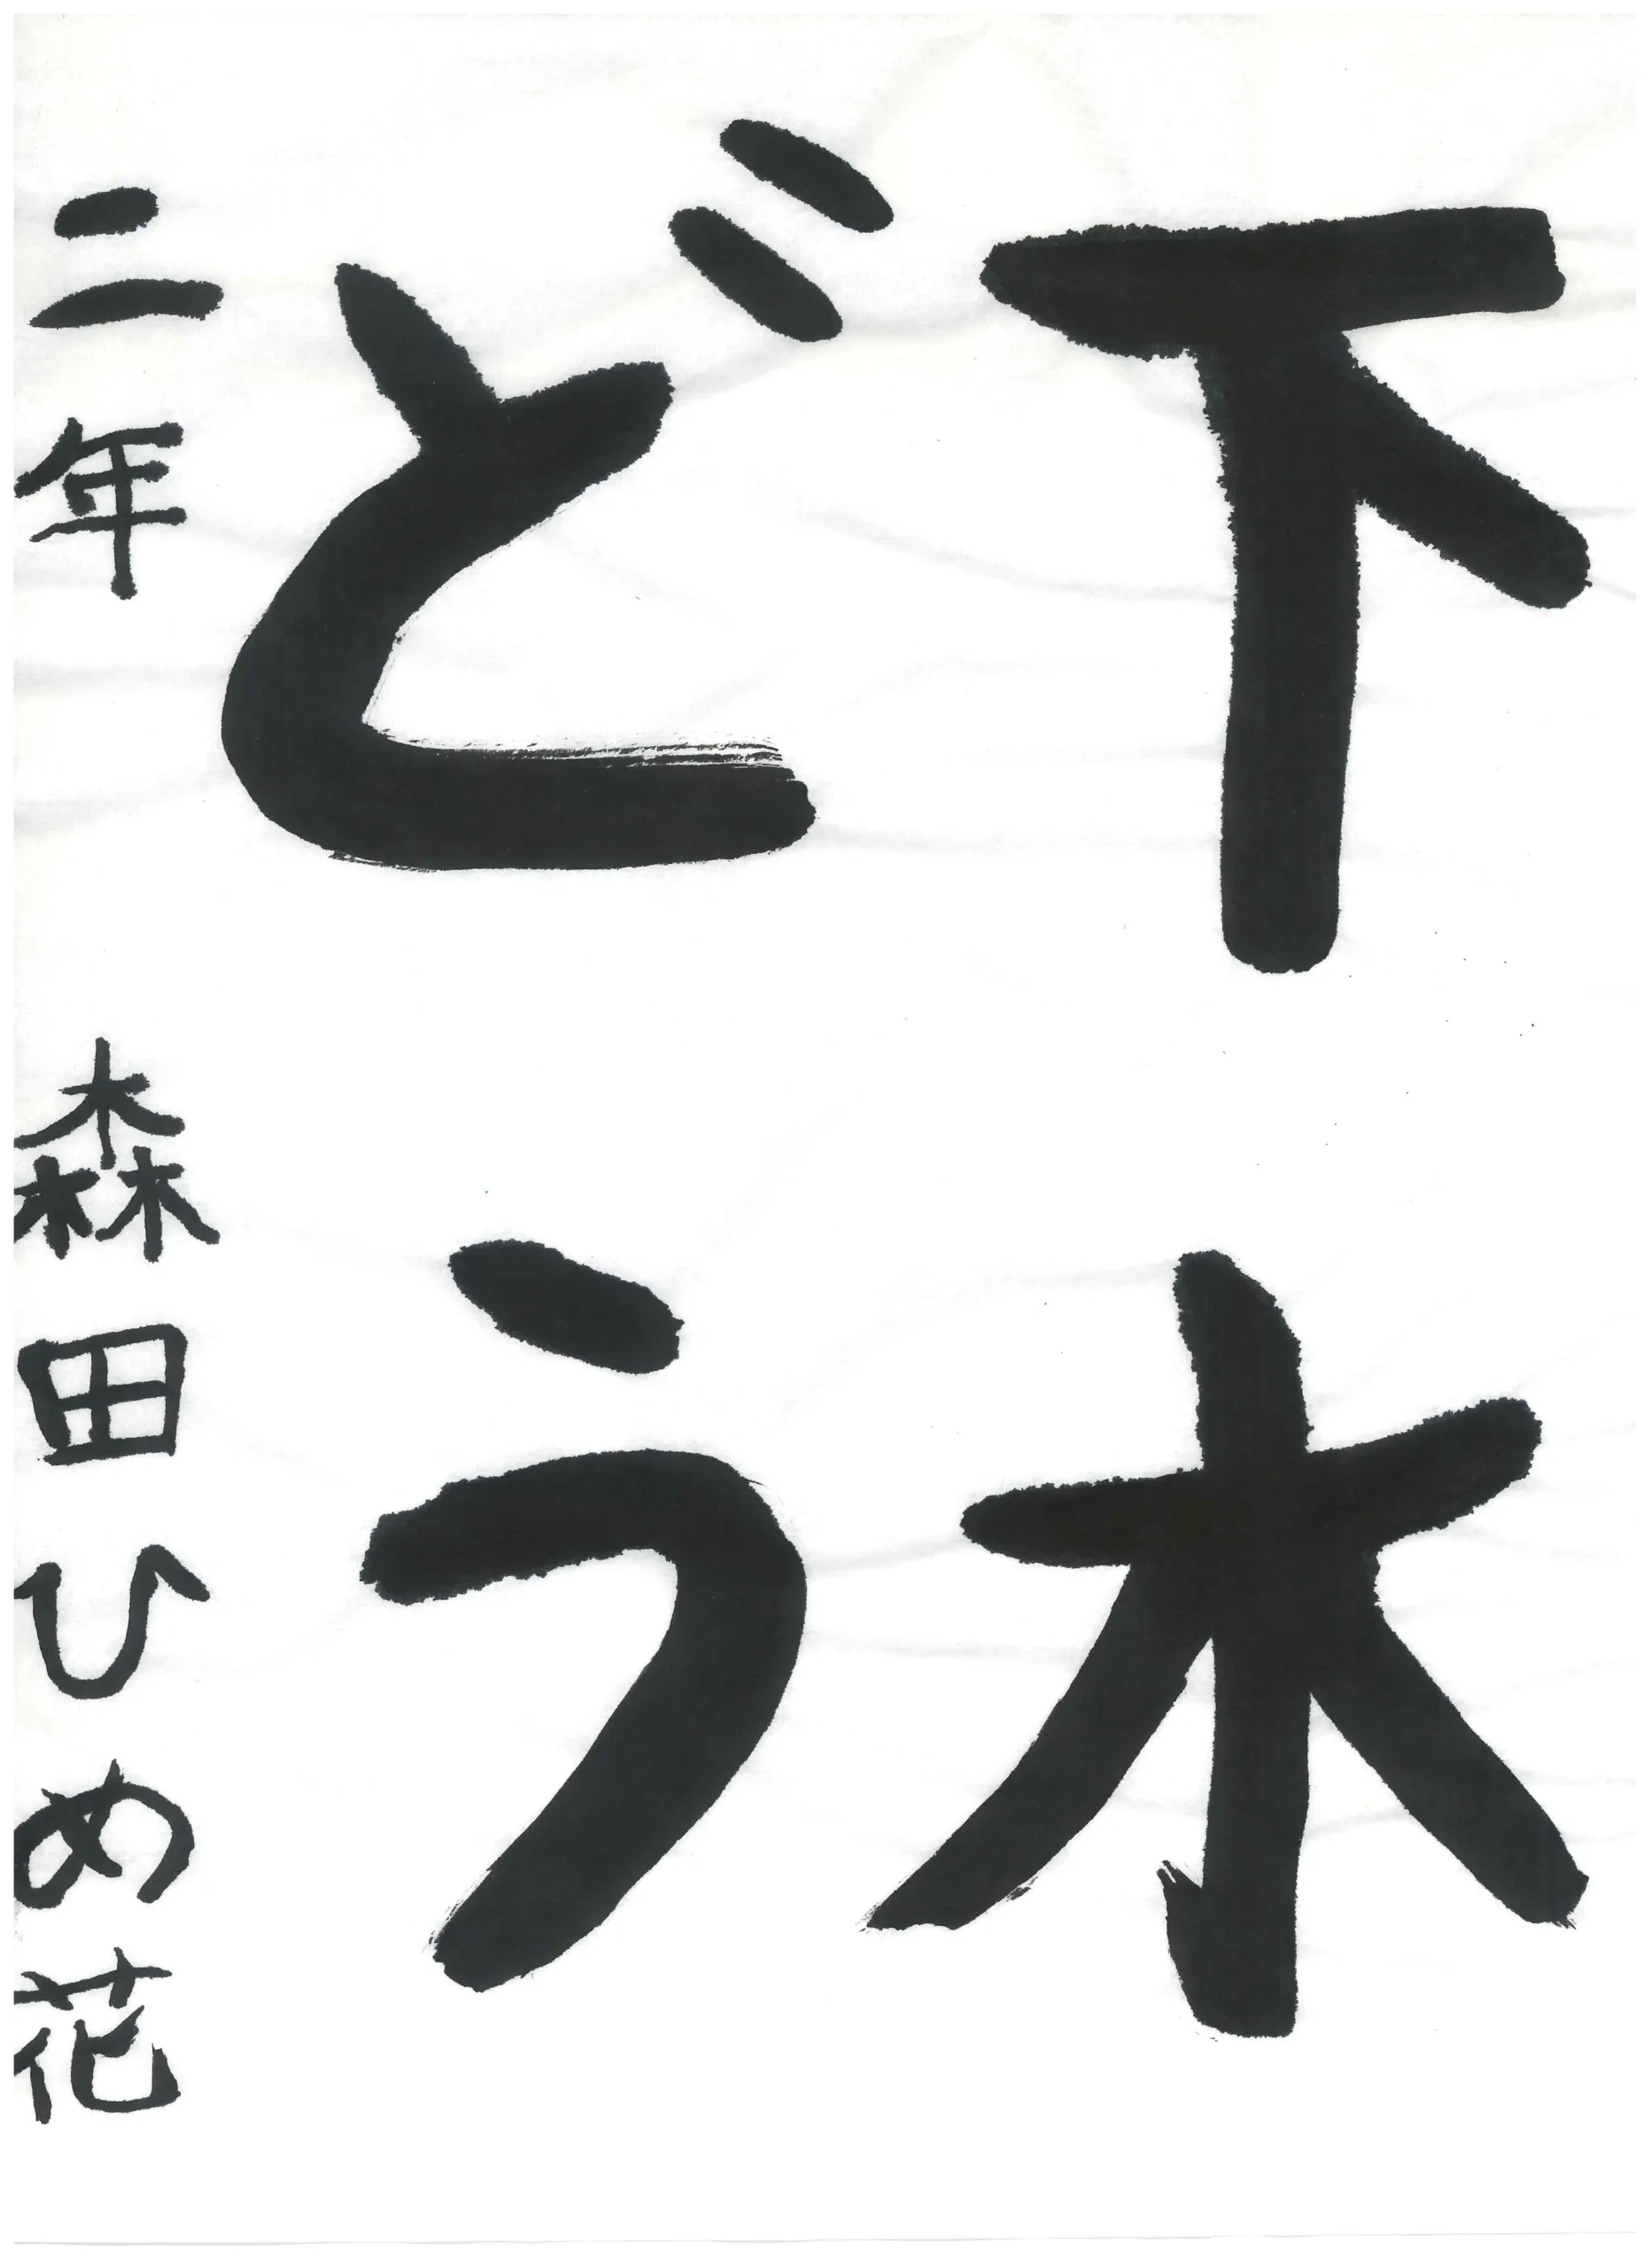 下木
どう
二年 森田ひめ花